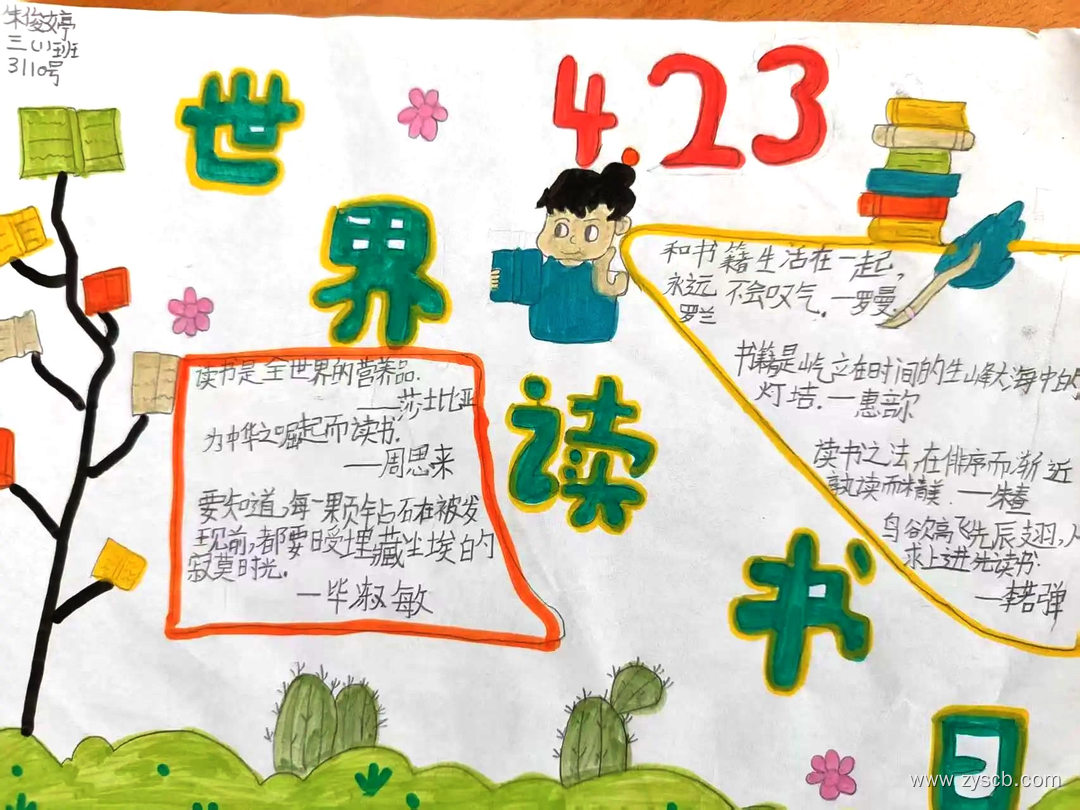 朱俊婷
三(1)班
3110号
世界读书日
4.23
读书是全世界的营养品.
——莎士比亚
为中华之崛起而读书.
——周恩来
要知道,每一颗钻石在被发
现前,都要受埋藏尘埃的
寂寞时光.
—毕淑敏
和书籍生活在一起,
永远不会叹气.—罗曼.
罗兰
书籍是屹立在时间的生峰大海中的
灯塔.—惠
读书之法,在俳序而,渐近
熟读而精美.——朱
鸟欲高飞先辰支羽,人
求上进先读书.
—李若弹
www.zyscb.com